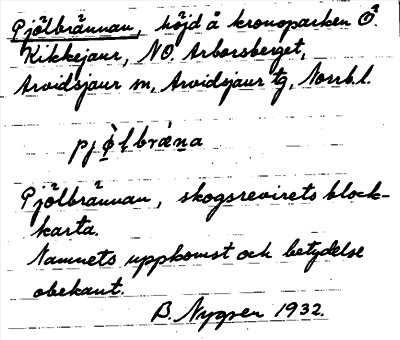 Pjölbrännan, höjd å kronoparken Ö.
Kikkejaur, NO. Arborsberget,
Arvidsjaur sn, Arvidsjaur tg, Norrb. l.
pjø̀lbræ̀na
Pjölbrännan, skogsrevirets block-
karta.
Namnets uppkomst och betydelse
obekant.
B. Nygren 1932.